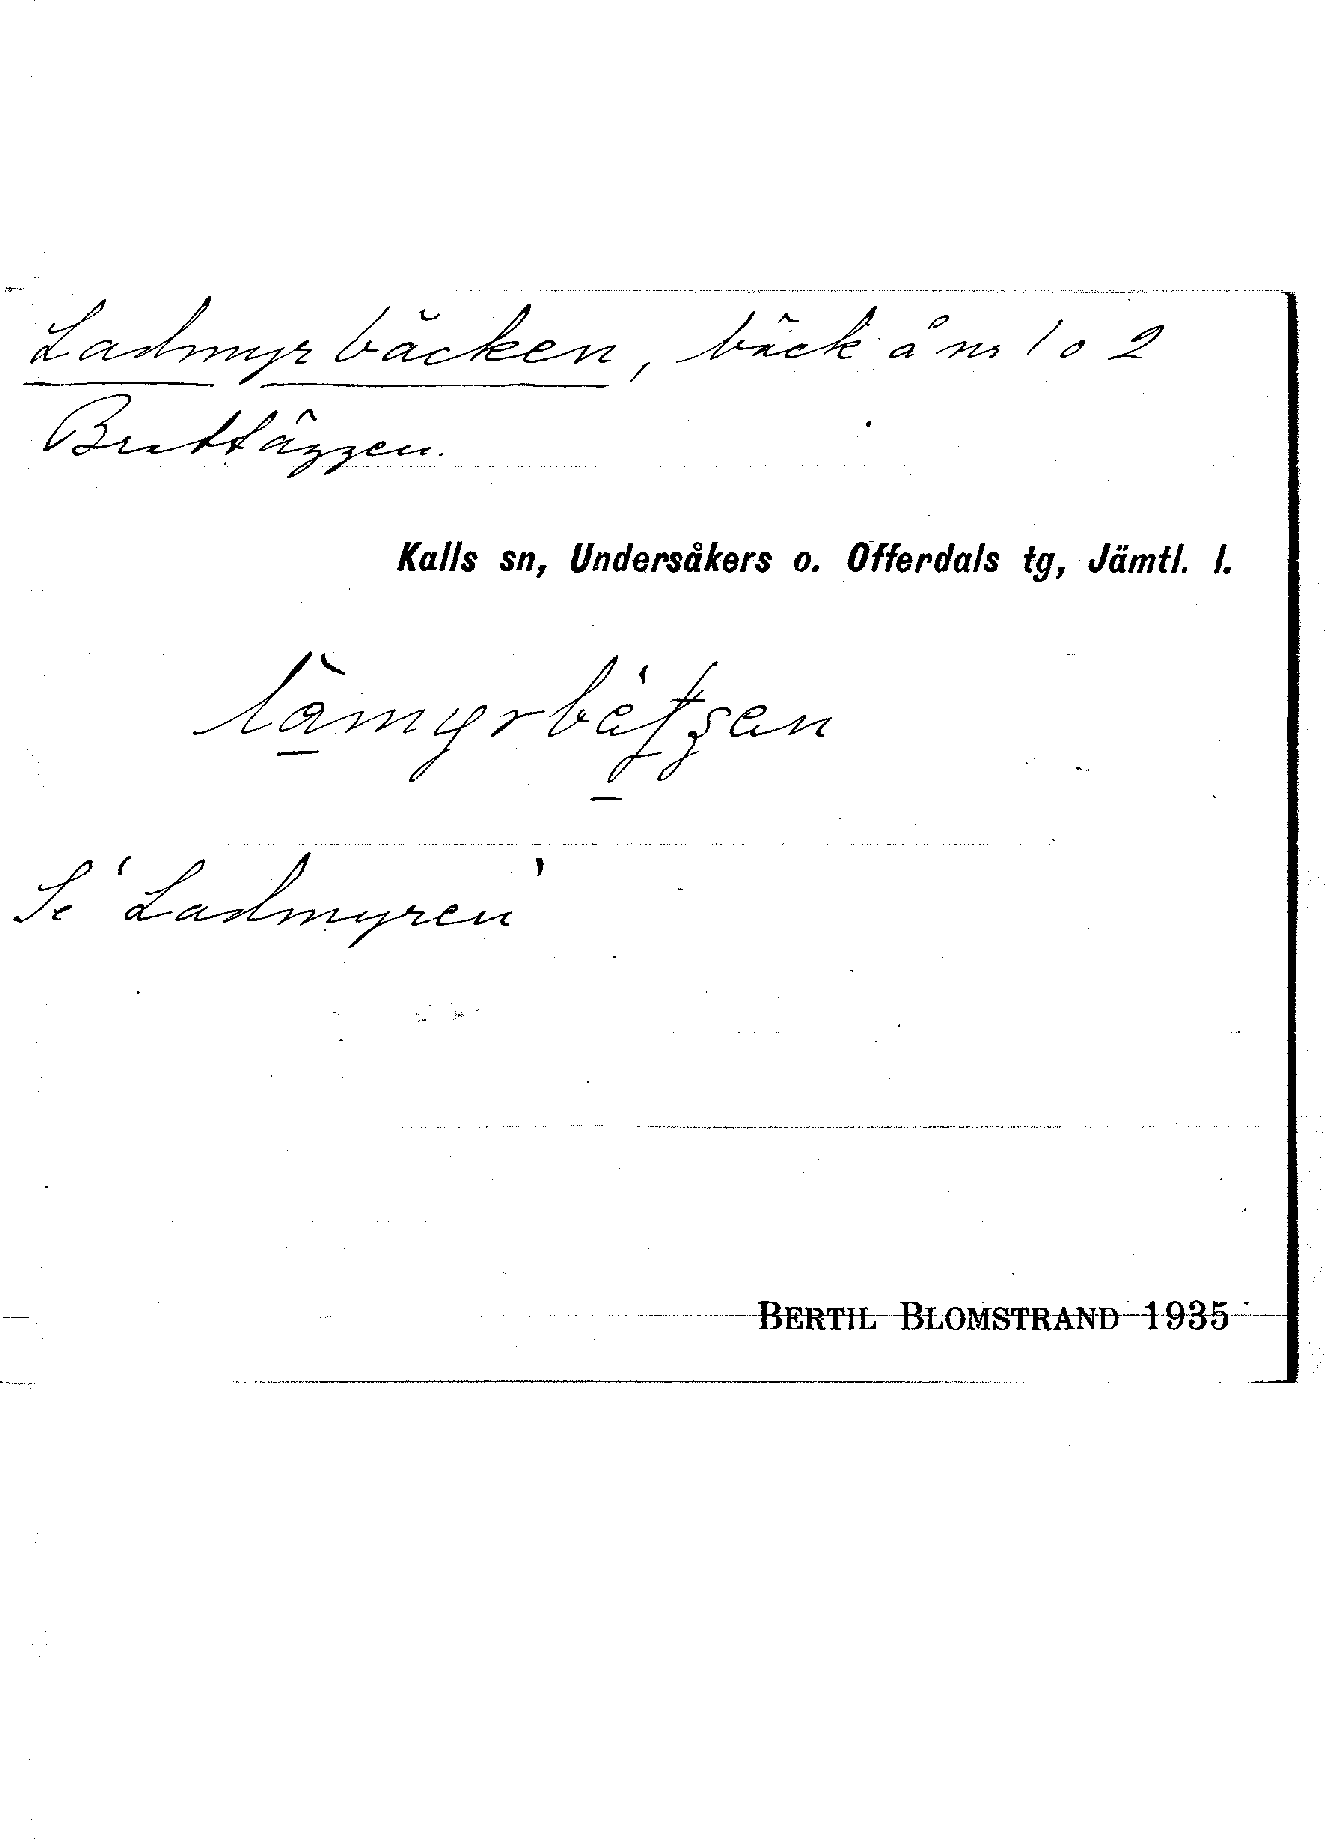 Ladmyrbäcken, bäck å nr 1 o 2
Bratteggen.
Kalls sn, Undersåkers o. Offerdals tg, Jämtl. l.
Se 'Ladmyren'
BERTIL BLOMSTRAND 1935